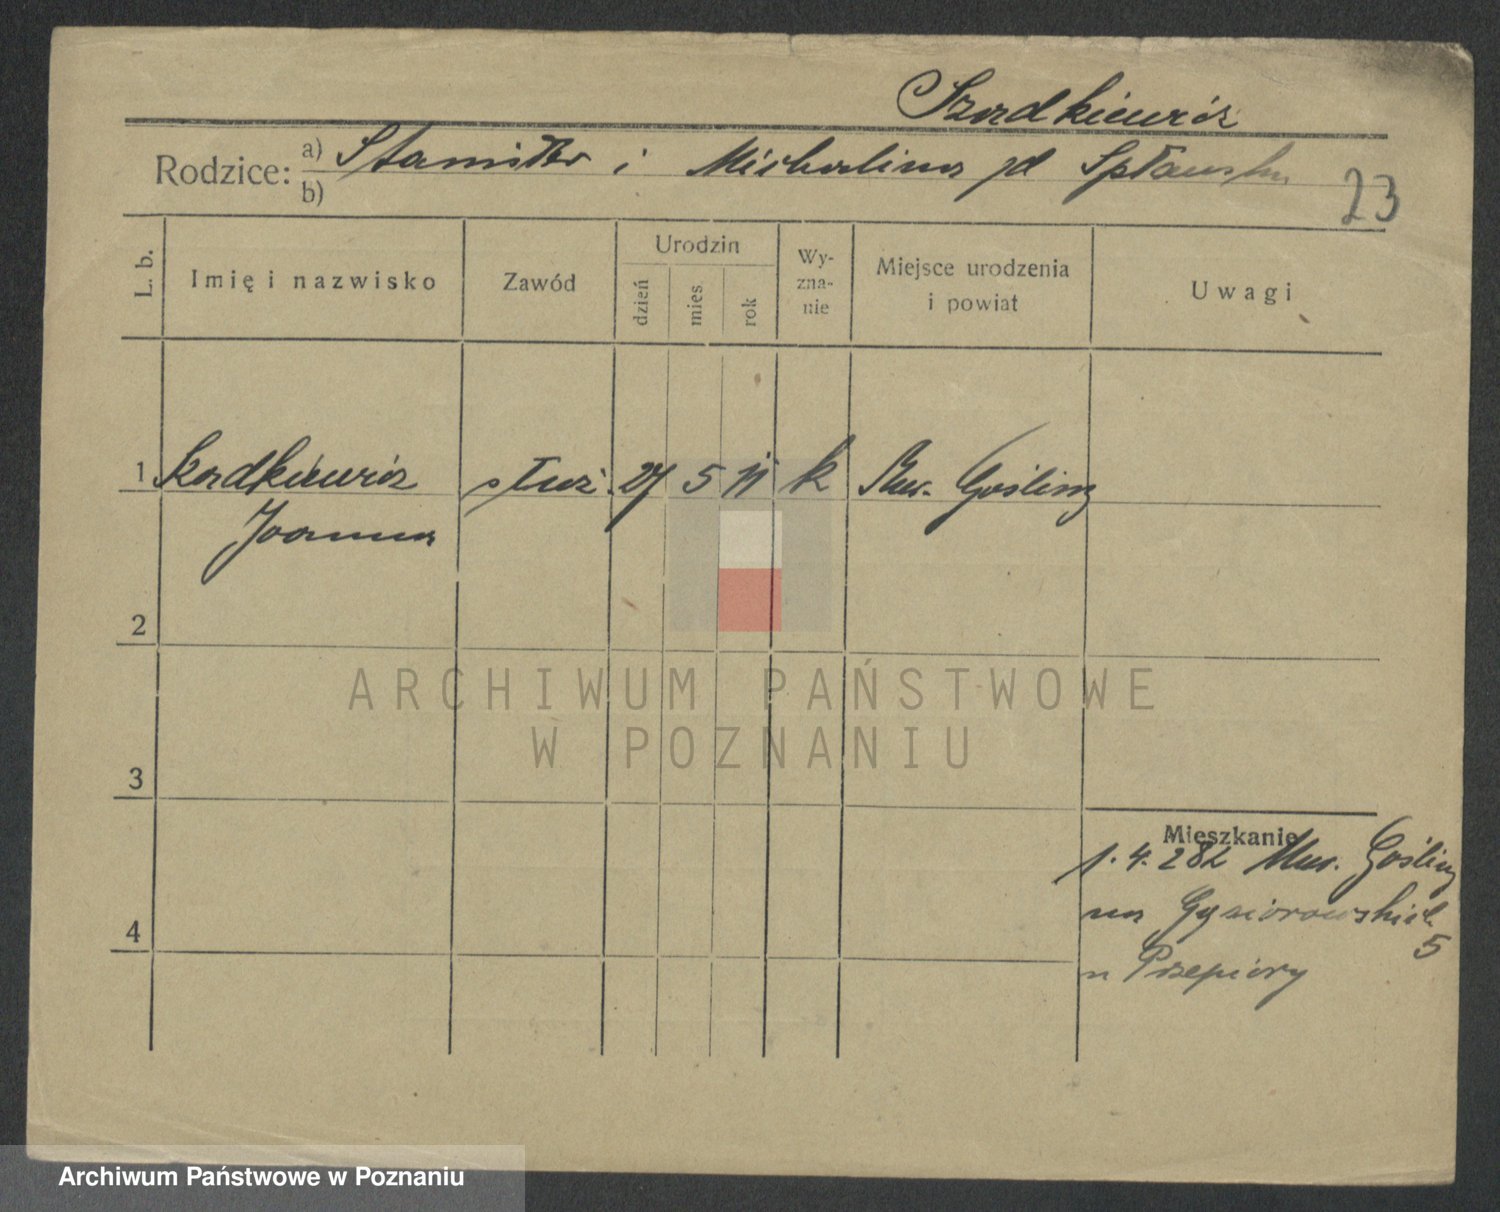 Szadkiewicz
Rodzice: a) Stanisław i Michalina zd Spławska
b)
23
L. b.
Imię i nazwisko
Zawód
Urodzin
dzień
mies
rok
Wy-
zna-
nie
Miejsce urodzenia
i powiat
Uwagi
1 Szadkiewicz służ. 27 5 11 k Mur. Goślina
Joanna
2
3
4
Mieszkanie
1.4.28 z Mur. Gośliny
na Gąsiorowskich
5
u Przepióry
ARCHIWUM PAŃSTWOWE
W POZNANIU
Archiwum Państwowe w Poznaniu